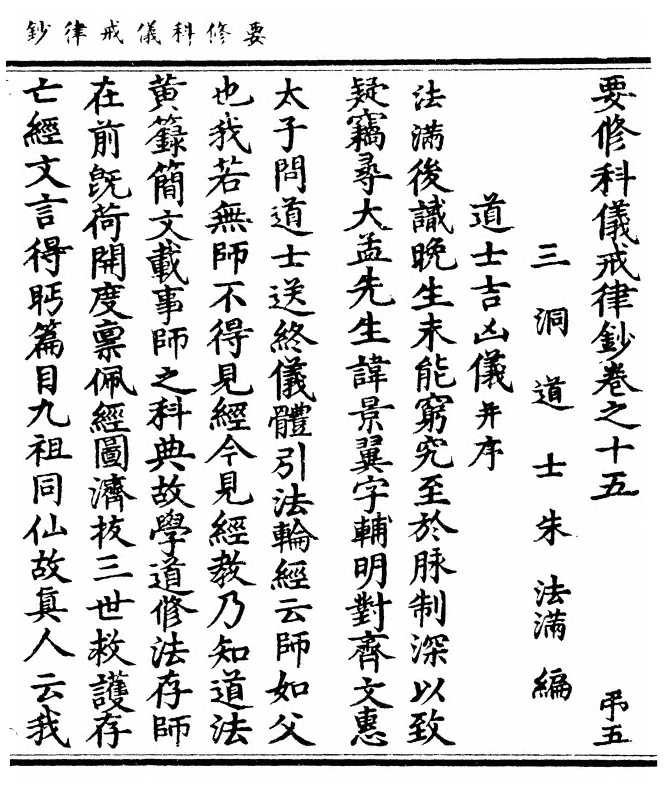 要修科儀戒律鈔
要修科儀戒律鈔卷之十五
弔五
三洞道士朱法滿編
道士吉凶儀并序
法滿後識晚生未能窮究至於脉制深以致
疑竊尋大孟先生諱景翼字輔明對齊文惠
太子問道士送終儀體引法輪經云師如父
也我若無師不得見經今見經教乃知道法
黄籙簡文載事師之科典故學道修法存師
在前旣荷開度禀佩經圖濟拔三世救護存
亡經文言得眄篇目九祖同仙故真人云我